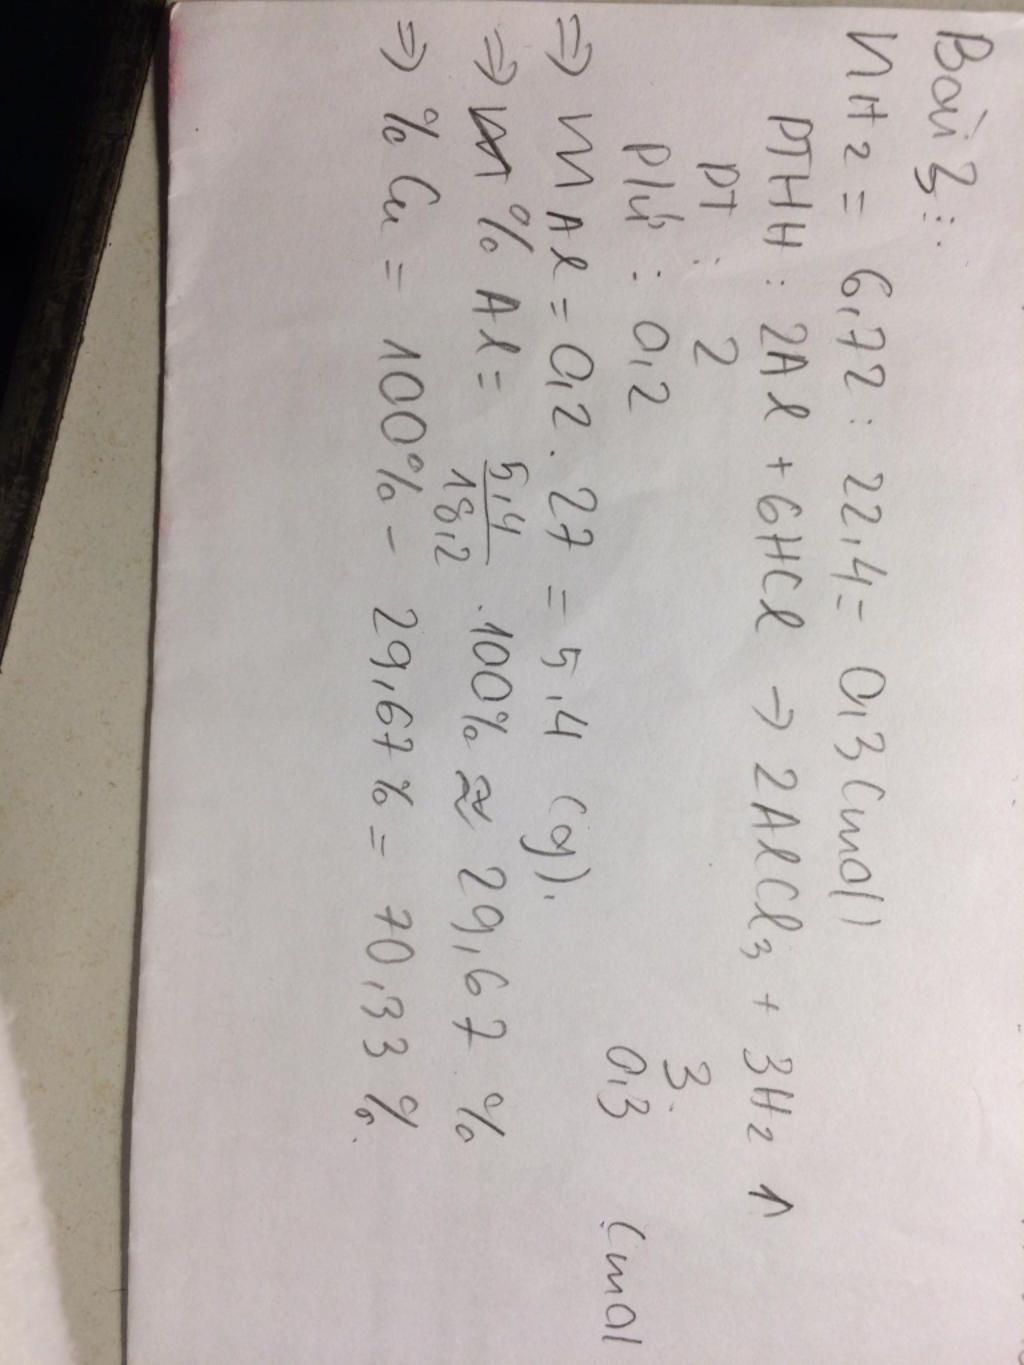 Bài 3:
nH2 = 6,72 : 22,4 = 0,3 (mol)
PTHH : 2Al + 6HCl → 2AlCl3 + 3H2 ↑
PT : 2 3.
P/ứ : 0,2 0,3 (mol
⇒ mAl = 0,2 . 27 = 5,4 (g).
⇒ % Al = 5,4/18,2 . 100% ≈ 29,67 %
⇒ % Cu = 100% - 29,67% = 70,33 %.